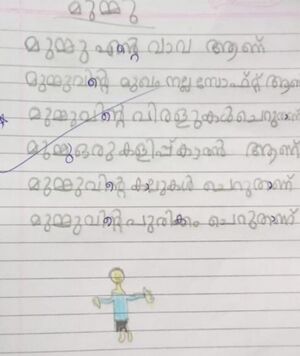 മുമ്മു
മുമ്മു എന്റെ വാവ ആണ്
മുമ്മുവിന്റെ മുഖം നല്ല സോഫ്റ്റ് ആണ
മുമ്മുവിന്റെ വിരളുകൾ ചെറുതാണ
മുമ്മു ഒരു കളിപ്പ്കാരൻ ആണ്
മുമ്മുവിന്റെ കാലുകൾ ചെറുതാണ്
മുമ്മുവിന്റെ പുരികം ചെറുതാണ്